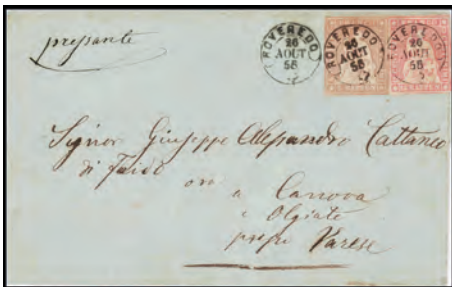 pressante
ROVEREDO
26
AOUT
56
ROVEREDO
26
AOUT
56
ROVEREDO
26
AOUT
56
Signor Giuseppe Alessandro Cattaneo
di Faido
ora
a Canova
e Olgiate
presso Varese